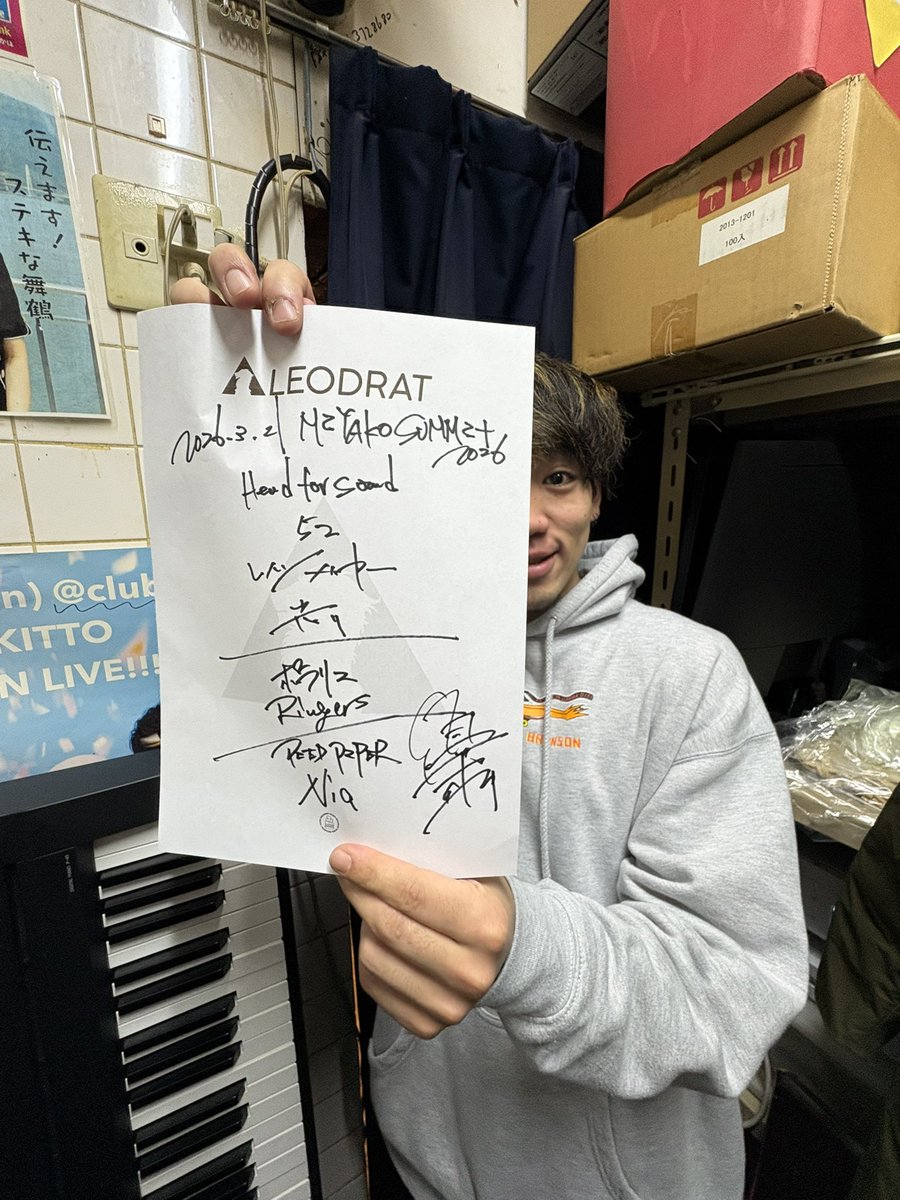 伝えます!
ステキな舞鶴
n) @club
KITTO
N LIVE!!!
2013-1201
100入
ALEODRAT
2026.3.21 MIYAKO SUMMIt
2026
Head for sound
52
レンジメーカー
Ringers
PEED PIPER
Nia
BRONSON